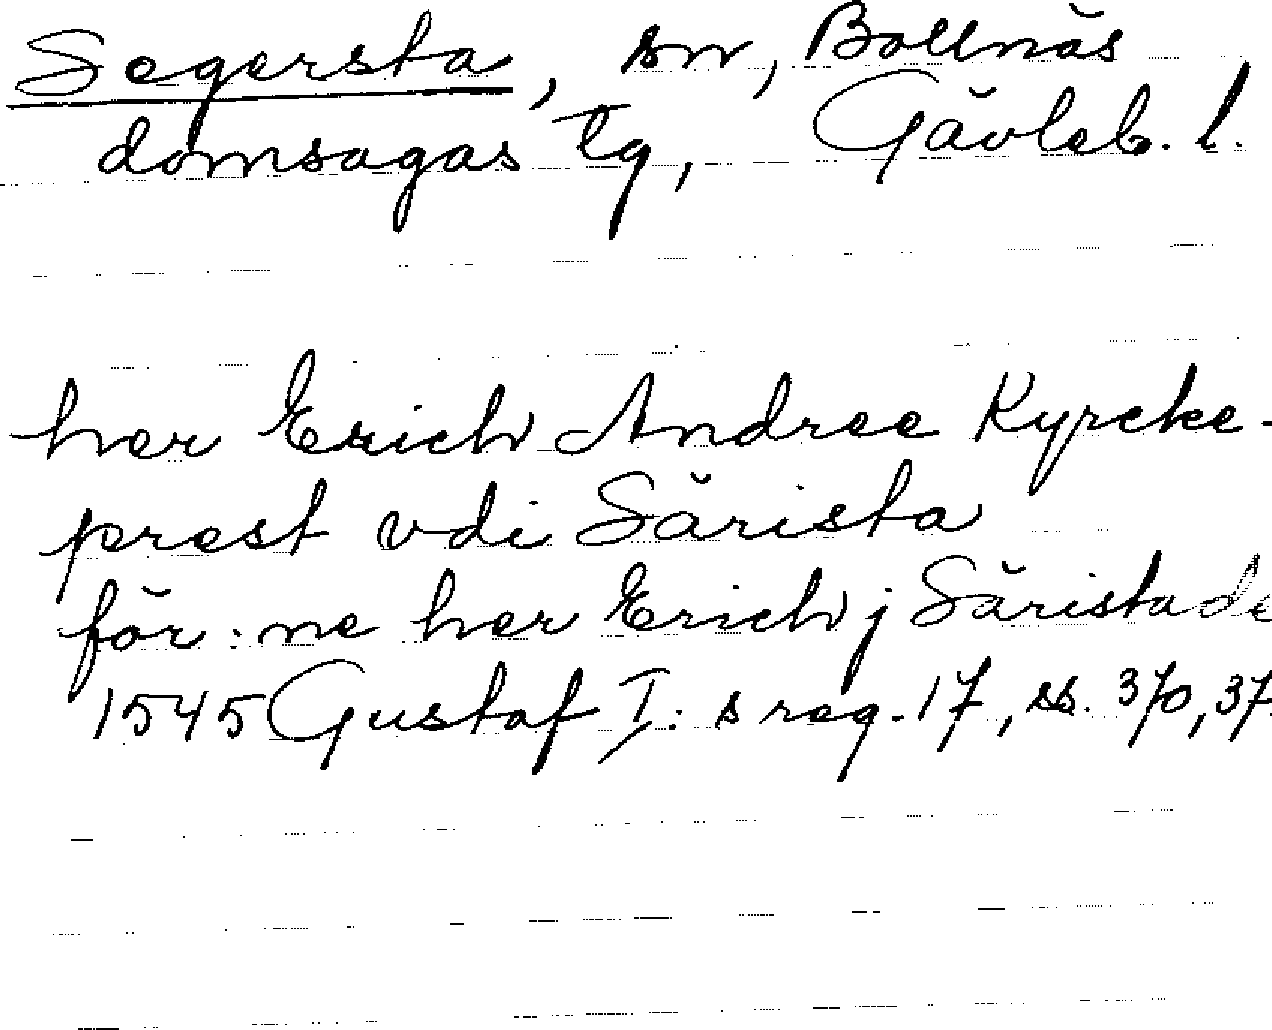 Segersta, sn, Bollnäs
domsagas tg, Gävleb. l.
her Erich Andree Kyrcke-
prest vdi Särista
för: ne her Erich j Särista de
1545 Gustaf I: s reg. 17, ss. 370, 37